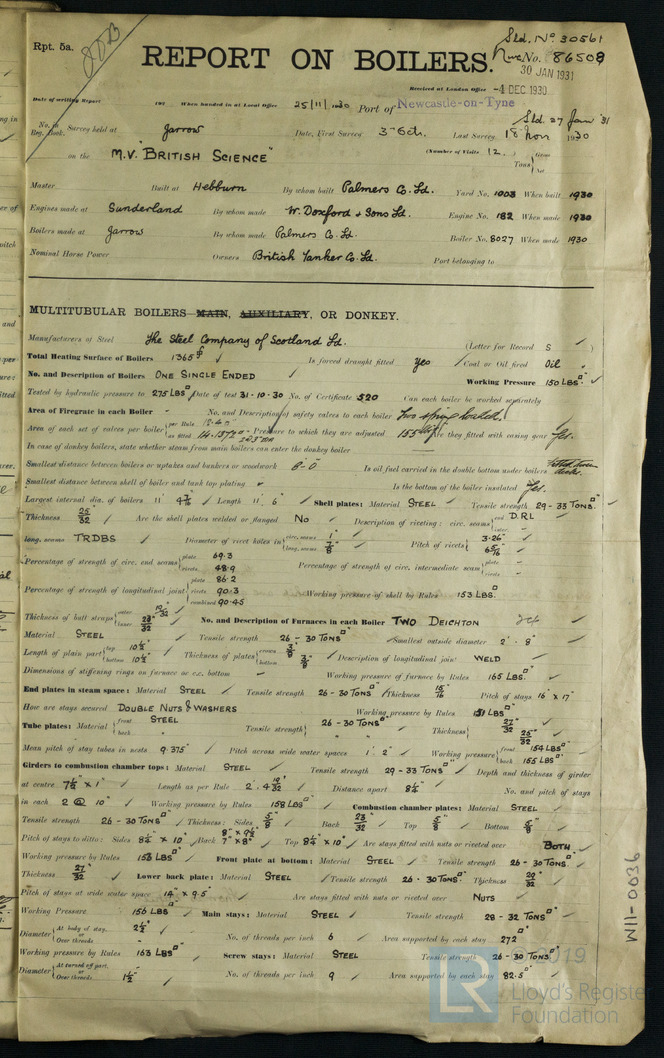 Rpt. 5a.
REPORT ON BOILERS.
Sld. No 30561
No. 86509
30 JAN 1931
Received at London Office -4 DEC 1930
Date of writing Report 192 When handed in at Local Office 25/11/1930 Port of Newcastle-on-Tyne
No. in Reg. Book. Survey held at Jarrow Date, First Survey 3 Oct. Last Survey 18 Nov 1930
on the M.V. "BRITISH SCIENCE" (Number of Visits 12.) Gross Tons Net
Master Built at Hebburn By whom built Palmers Co. Ld. Yard No. 1003 When built 1930
Engines made at Sunderland By whom made W. Doxford & Sons Ld. Engine No. 182 When made 1930
Boilers made at Jarrow By whom made Palmers Co. Ld. Boiler No. 8027 When made 1930
Nominal Horse Power Owners British Tanker Co. Ld. Port belonging to
MULTITUBULAR BOILERS MAIN, AUXILIARY, OR DONKEY.
Manufacturers of Steel The Steel Company of Scotland Ld. (Letter for Record S )
Total Heating Surface of Boilers 1365 Is forced draught fitted Yes Coal or Oil fired Oil
No. and Description of Boilers ONE SINGLE ENDED Working Pressure 150 LBS
Tested by hydraulic pressure to 275 LBS Date of test 31-10-30 No. of Certificate 520 Can each boiler be worked separately
Area of Firegrate in each Boiler - No. and Description of safety valves to each boiler Two spring loaded.
Area of each set of valves per boiler per Rule as fitted Pressure to which they are adjusted 155 Are they fitted with easing gear Yes.
In case of donkey boilers, state whether steam from main boilers can enter the donkey boiler
Smallest distance between boilers or uptakes and bunkers or woodwork Is oil fuel carried in the double bottom under boilers
Smallest distance between shell of boiler and tank top plating Is the bottom of the boiler insulated Yes.
Largest internal dia. of boilers 11' 4 7/16" Length 11' 6" Shell plates: Material STEEL Tensile strength 29-33 TONS.
Thickness 25/32 Are the shell plates welded or flanged No Description of riveting: circ. seams end D.R.L inter. -
long. seams T.R.D.B.S Diameter of rivet holes in circ. seams 1" long. seams 7/8" Pitch of rivets 3.26"
Percentage of strength of circ. end seams plate 69.3 rivets 48.9 Percentage of strength of circ. intermediate seam plate - rivets -
Percentage of strength of longitudinal joint plate 86.2 rivets 90.3 combined 90.45 Working pressure of shell by Rules 153 LBS.
Thickness of butt straps outer 19/32 inner 23/32 No. and Description of Furnaces in each Boiler TWO DEIGHTON
Material STEEL Tensile strength 26-30 TONS Smallest outside diameter 2'-8"
Length of plain part top 10 1/2" bottom 10 1/2" Thickness of plates crown 3/8" bottom 3/8" Description of longitudinal joint WELD
Dimensions of stiffening rings on furnace or c.c. bottom Working pressure of furnace by Rules 165 LBS.
End plates in steam space: Material STEEL Tensile strength 26-30 TONS Thickness 15/16" Pitch of stays 16" x 17"
How are stays secured DOUBLE NUTS & WASHERS Working pressure by Rules 151 LBS
Tube plates: Material front STEEL back " Tensile strength 26-30 TONS Thickness 27/32" 25/32"
Mean pitch of stay tubes in nests 9.375" Pitch across wide water spaces 1' 2" Working pressure front 154 LBS back 155 LBS
Girders to combustion chamber tops: Material STEEL Tensile strength 29-33 TONS Depth and thickness of girder
at centre 7 1/2" x 1" Length as per Rule 2'.4 19/32" Distance apart 8 1/4" No. and pitch of stays
in each 2 @ 10" Working pressure by Rules 158 LBS Combustion chamber plates: Material STEEL
Tensile strength 26-30 TONS Thickness: Sides 5/8" Back 23/32 Top 5/8" Bottom 5/8"
Pitch of stays to ditto: Sides 8 1/4" x 10" Back 8" x 9 1/2" 7" x 8" Top 8 1/4" x 10" Are stays fitted with nuts or riveted over BOTH
Working pressure by Rules 153 LBS Front plate at bottom: Material STEEL Tensile strength 26-30 TONS
Thickness 27/32 Lower back plate: Material STEEL Tensile strength 26-30 TONS Thickness 29/32
Pitch of stays at wide water space 14" x 9.5" Are stays fitted with nuts or riveted over NUTS
Working Pressure 156 LBS Main stays: Material STEEL Tensile strength 28-32 TONS
Diameter At body of stay, 2 1/2" Over threads - No. of threads per inch 6 Area supported by each stay 272
Working pressure by Rules 163 LBS Screw stays: Material STEEL Tensile strength 26-30 TONS
Diameter At turned off part, Over threads 1 1/2" No. of threads per inch 9 Area supported by each stay 82.5
W11-0036
© 2019
LR
Lloyd's Register
Foundation